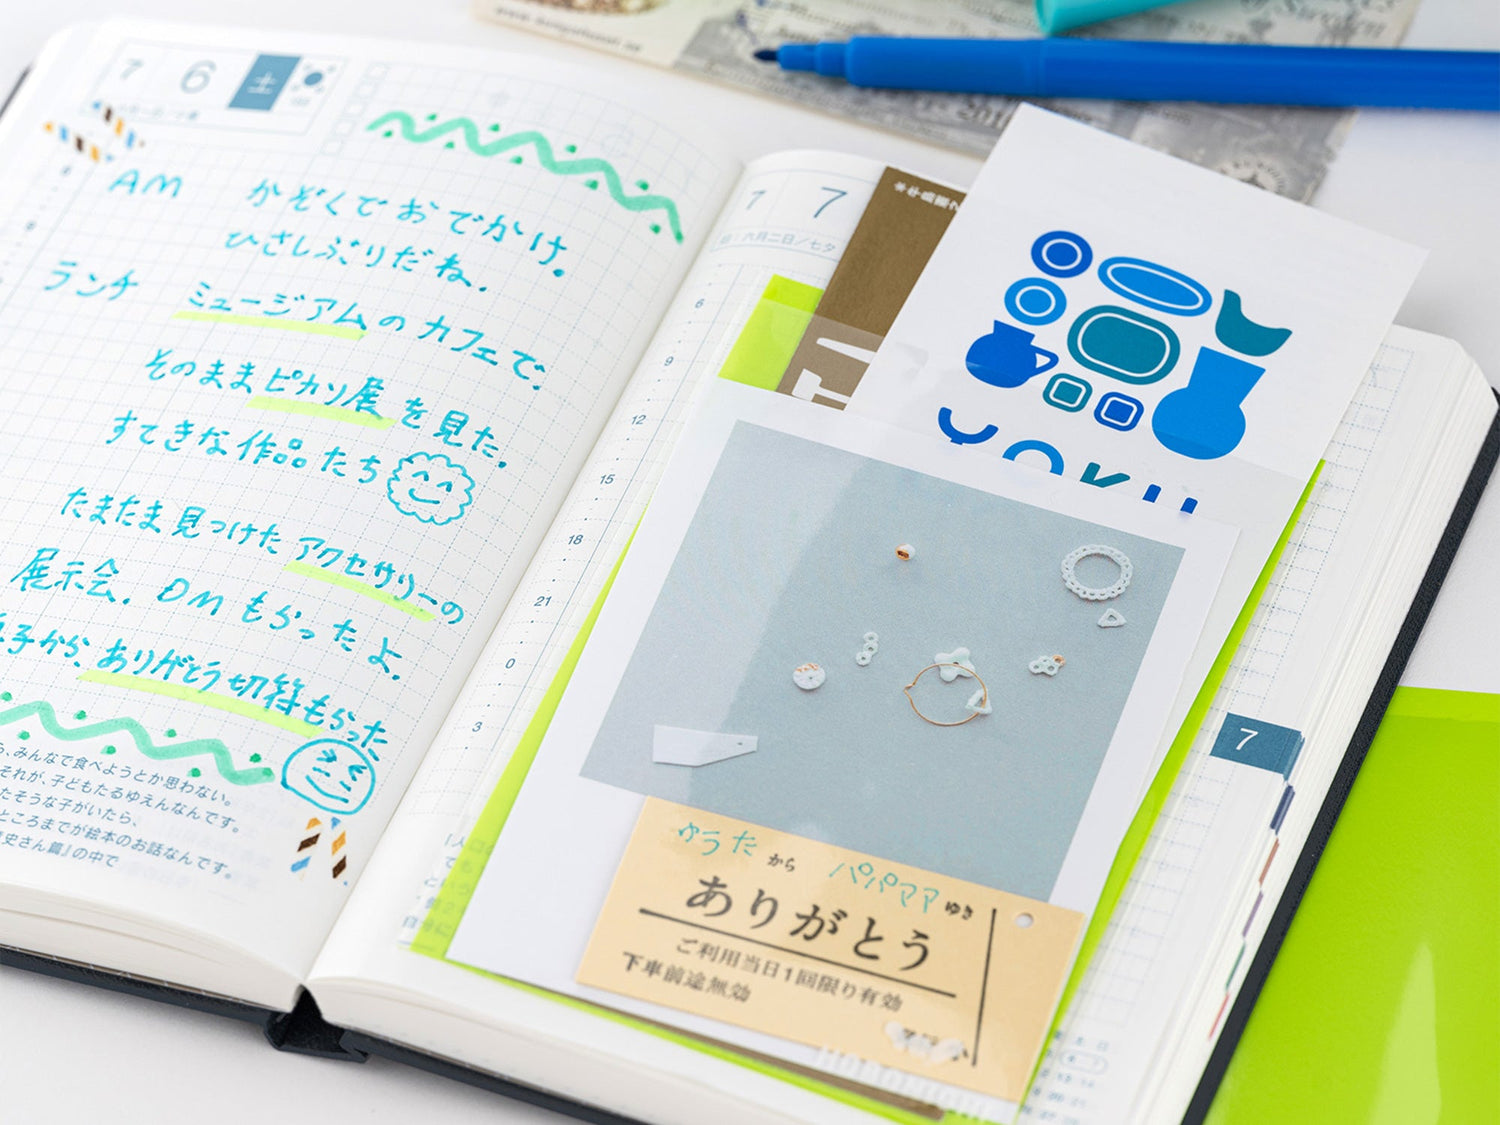 7 6 土
AM かぞくでおでかけ。
ひさしぶりだね。
ランチ ミュージアムのカフェで、
そのままピカソ展を見た。
すてきな作品たち
たまたま見つけたアクセサリーの
展示会。DMもらったよ。
子から、ありがとう切符もらった
、みんなで食べようとか思わない。
それが、子どもたるゆえんなんです。
たそうな子がいたら、
ところまでが絵本のお話なんです。
史さん篇』の中で
7 7
六月二日／七夕
6
9
12
15
18
21
0
3
YOKU
ゆうた から パパママ ゆき
ありがとう
ご利用当日1回限り有効
下車前途無効
7
201